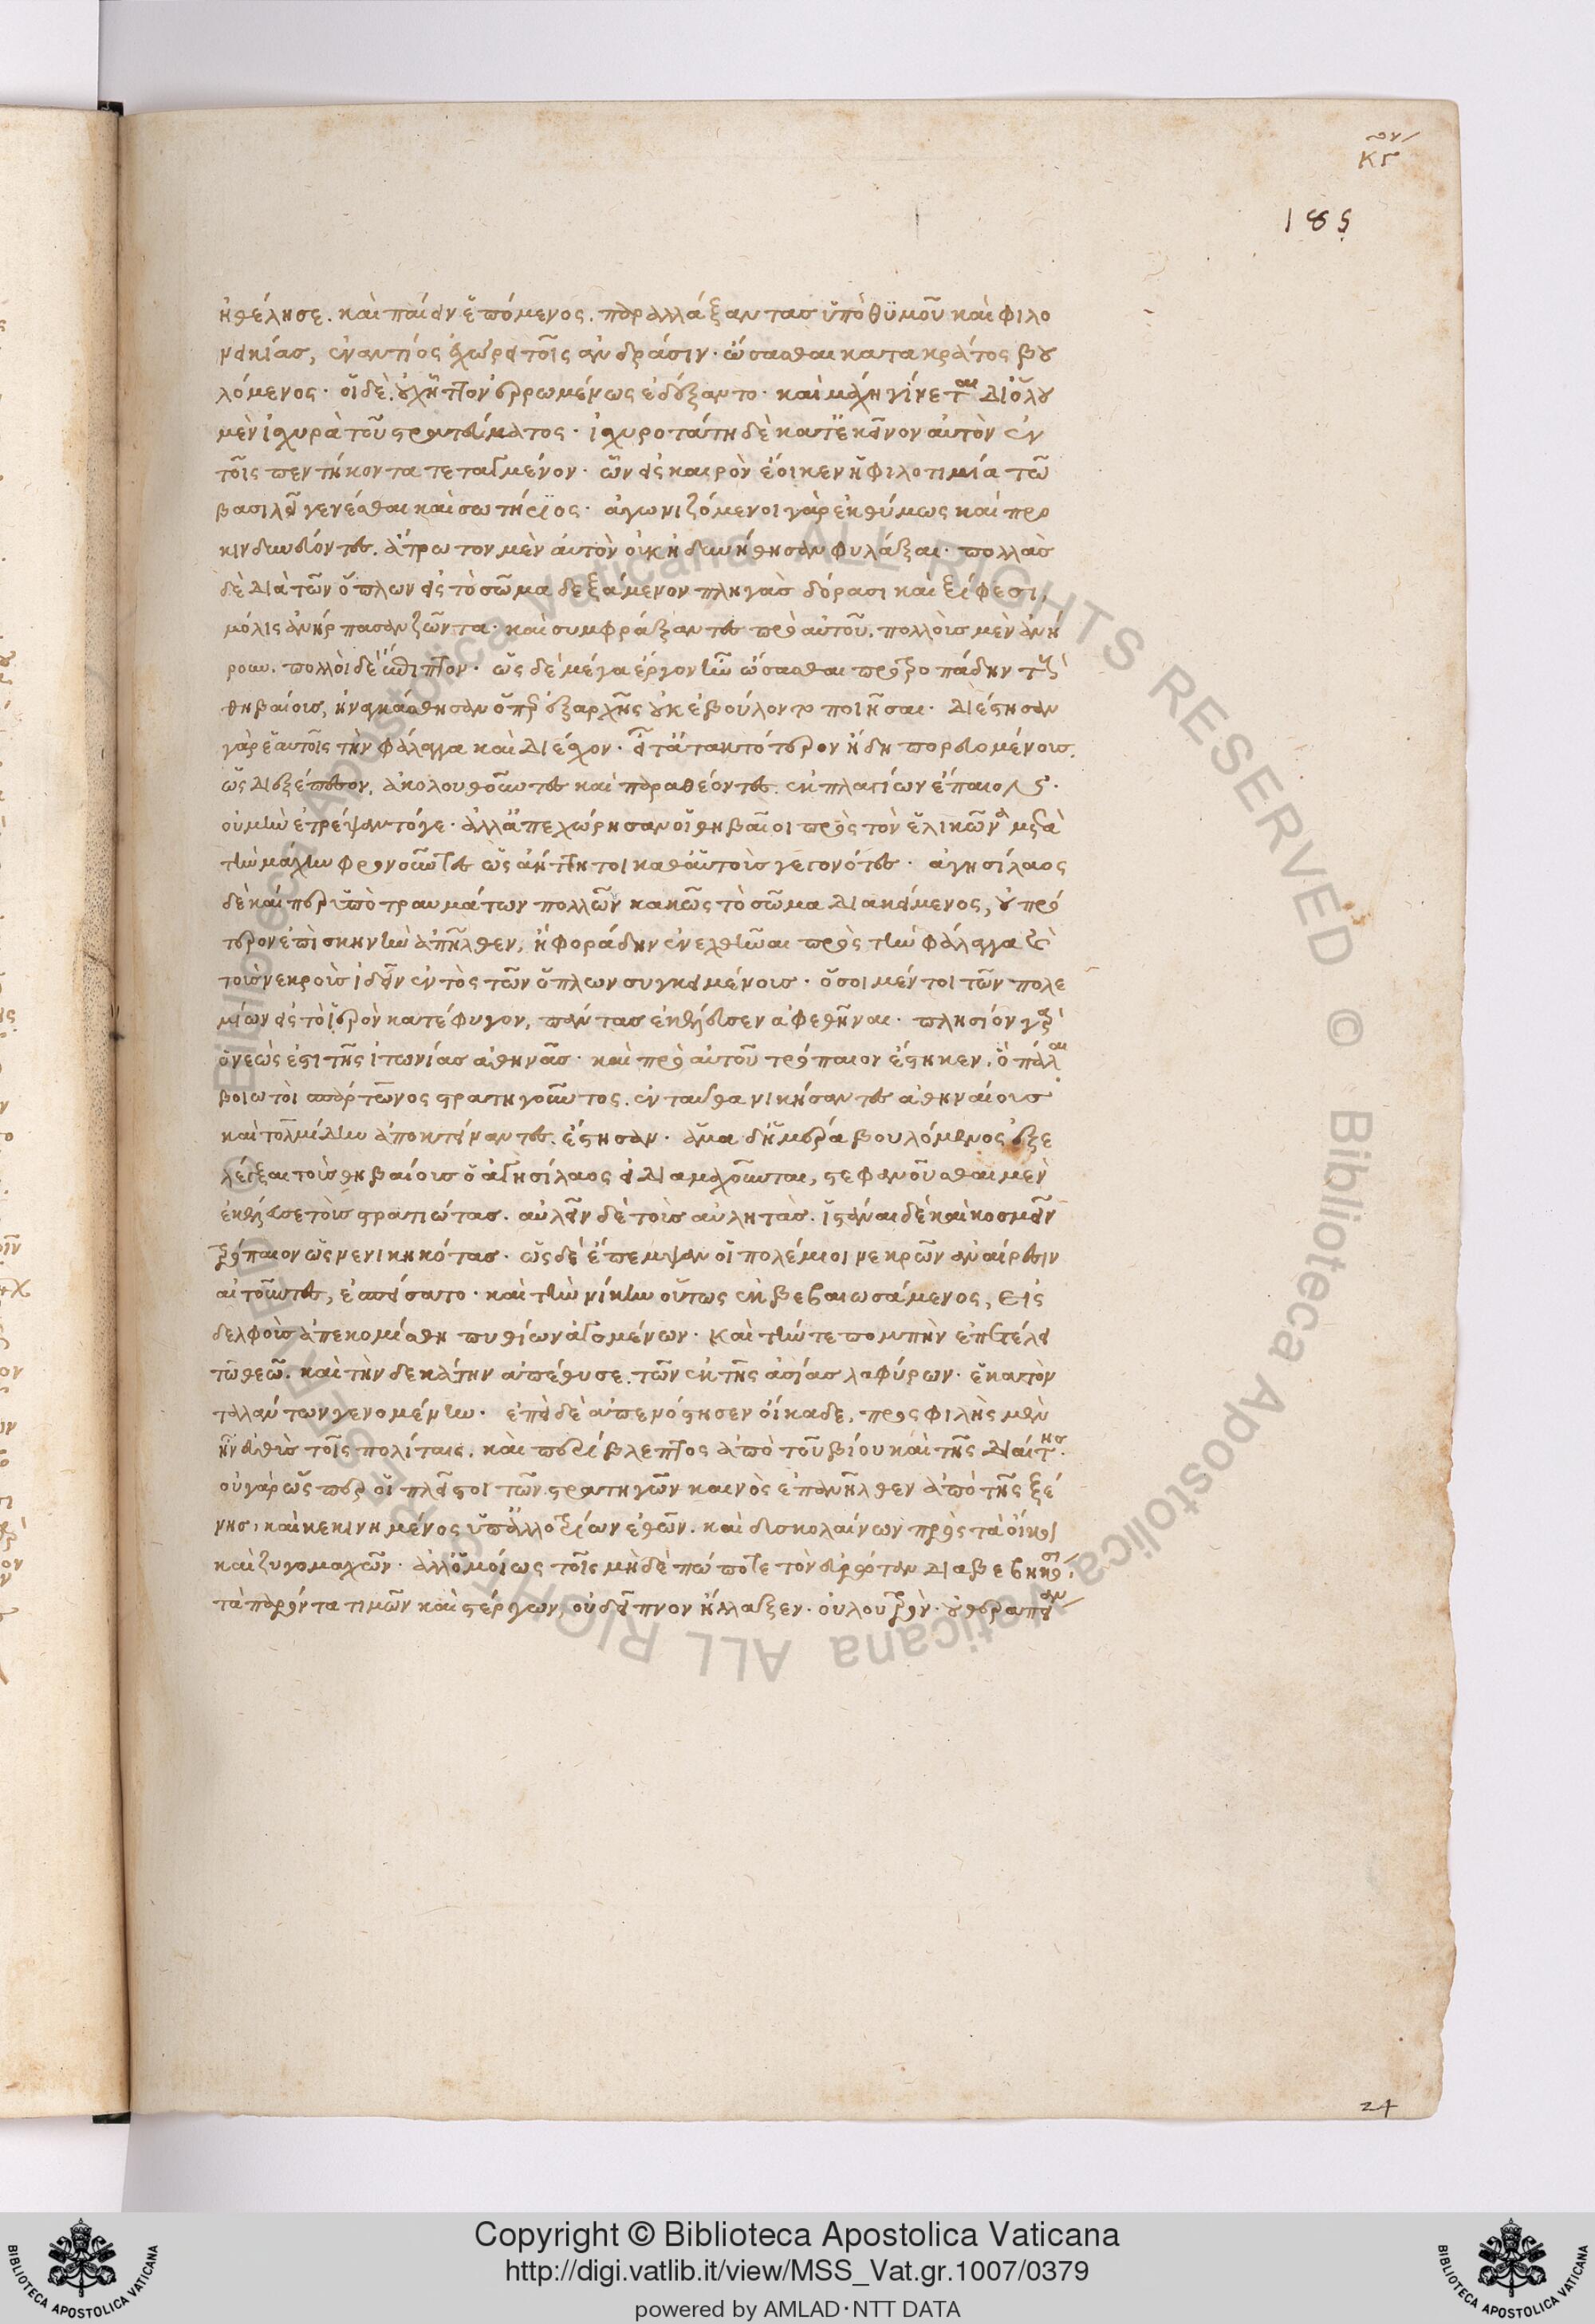 κγον
185
ἠθέλησε. καὶ παίειν ἑπόμενος. παραλλάξαντας ὑπὸ θυμοῦ καὶ φιλο
νεικίας, ἐναντίος ἐχώρει τοῖς ἀνδράσιν· ὤσασθαι κατα κράτος βου
λόμενος· οἱ δὲ οὐχ ἧττον ἐρρωμένως ἐδέξαντο· καὶ μάχη γίνεται δι ὅλου
μὲν ἰσχυρὰ τοῦ στρατεύματος· ἰσχυροτάτη δὲ κατ ἐκεῖνον αὐτὸν ἐν
τοῖς πεντήκοντα τεταγμένον· ὧν εἰς καιρὸν ἔοικεν ἡ φιλοτιμία τῶ
βασιλεῖ γενέσθαι καὶ σωτήριος· ἀγωνιζόμενοι γὰρ ἐκθύμως καὶ προ
κινδυνεύοντες. ἄτρωτον μὲν αὐτὸν οὐκ ἠδυνήθησαν φυλάξαι· πολλὰς
δὲ διὰ τῶν ὅπλων εἰς τὸ σῶμα δεξάμενον πληγὰς δόρασι καὶ ξίφεσι,
μόλις ἀνήρπασαν ζῶντα· καὶ συμφράξαντες πρὸ αὐτοῦ. πολλοὺς μὲν ἀνή
ρουν. πολλοὶ δὲ ἔπιπτον· ὡς δὲ μέγα ἔργον ἦν ὤσασθαι προτροπάδην τοὺς
θηβαίους, ἠναγκάσθησαν ὅπερ ἐξαρχῆς οὐκ ἐβούλοντο ποιῆσαι· διέστησαν
γὰρ ἑαυτοῖς τὴν φάλαγγα καὶ διέσχον· εἶτα ἀτακτότερον ἤδη πορευομένους.
ὡς διεξέπεσον, ἀκολουθοῦντες καὶ παραθέοντες. ἐκ πλαγίων ἔπαιον·
οὐ μὴν ἐτρέψαντό γε· ἀλλ ἀπεχώρησαν οἱ θηβαῖοι πρὸς τὸν ἑλικῶνα μετὰ
τὴν μάχην φρονοῦντες ὡς ἀήττητοι καθ αὑτοὺς γεγονότες· ἀγησίλαος
δὲ καίπερ ὑπὸ τραυμάτων πολλῶν κακῶς τὸ σῶμα διακείμενος, οὐ πρό
τερον ἐπὶ σκηνὴν ἀπῆλθεν, ἢ φοράδην ἐνεχθῆναι πρὸς τὴν φάλαγγα καὶ
τοὺς νεκροὺς ἰδεῖν ἐντὸς τῶν ὅπλων συγκειμένους· ὅσοι μέντοι τῶν πολε
μίων εἰς τὸ ἱερὸν κατέφυγον, πάντας ἐκέλευσεν ἀφεθῆναι· πλησίον γὰρ
ὁ νεώς ἐστι τῆς ἰτωνίας ἀθηνᾶς· καὶ πρὸ αὐτοῦ τρόπαιον ἕστηκεν, ὃ πάλαι
βοιωτοὶ σπάρτωνος στρατηγοῦντος. ἐνταῦθα νικήσαντες ἀθηναίους
καὶ τολμίδην ἀποκτείναντες. ἔστησαν· ἅμα δ ἡμέρα βουλόμενος ἐξε
λέγξαι τοὺς θηβαίους ὁ ἀγησίλαος εἰ διαμαχοῦνται, στεφανοῦσθαι μὲν
ἐκέλευσε τοὺς στρατιώτας. αὐλεῖν δὲ τοὺς αὐλητὰς. ἱστάναι δὲ καὶ κοσμεῖν
τρόπαιον ὡς νενικηκότας· ὡς δὲ ἔπεμψαν οἱ πολέμιοι νεκρῶν ἀναίρεσιν
αἰτοῦντες, ἐσπείσατο· καὶ τὴν νίκην οὕτως ἐκβεβαιωσάμενος, εἰς
δελφοὺς ἀπεκομίσθη πυθίων ἀγομένων· καὶ τήν τε πομπὴν ἐπετέλει
τῶ θεῶ. καὶ τὴν δεκάτην ἀπέθυσε. τῶν ἐκ τῆς ἀσίας λαφύρων· ἑκατὸν
ταλάντων γενομένην· ἐπεὶ δὲ ἀπενόστησεν οἴκαδε, προσφιλὴς μὲν
ἦν εὐθὺς τοῖς πολίταις. καὶ περίβλεπτος ἀπὸ τοῦ βίου καὶ τῆς διαίτης·
οὐ γὰρ ὥσπερ οἱ πλεῖστοι τῶν στρατηγῶν καινὸς ἐπανῆλθεν ἀπὸ τῆς ξέ
νης, καὶ κεκινημένος ὑπ ἀλλοτρίων ἐθῶν. καὶ δυσκολαίνων πρὸς τὰ οἴκοι
καὶ ζυγομαχῶν· ἀλλ ὁμοίως τοῖς μηδὲ πώποτε τὸν εὐρώταν διαβεβηκόσι,
τὰ παρόντα τιμῶν καὶ στέργων, οὐ δεῖπνον ἤλλαξεν· οὐ λουτρόν· οὐ θεραπείαν
24
Copyright © Biblioteca Apostolica Vaticana
http://digi.vatlib.it/view/MSS_Vat.gr.1007/0379
powered by AMLAD·NTT DATA